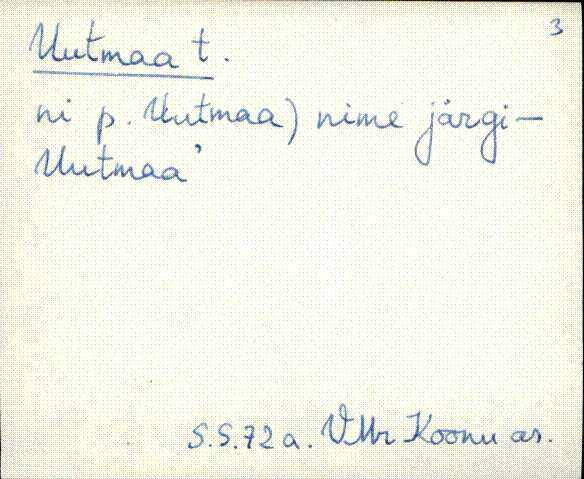 3
Uutmaa t.
ni p. Uutmaa) nime järgi –
Uutmaa’
S.S. 72 a. VMr Koonu as.